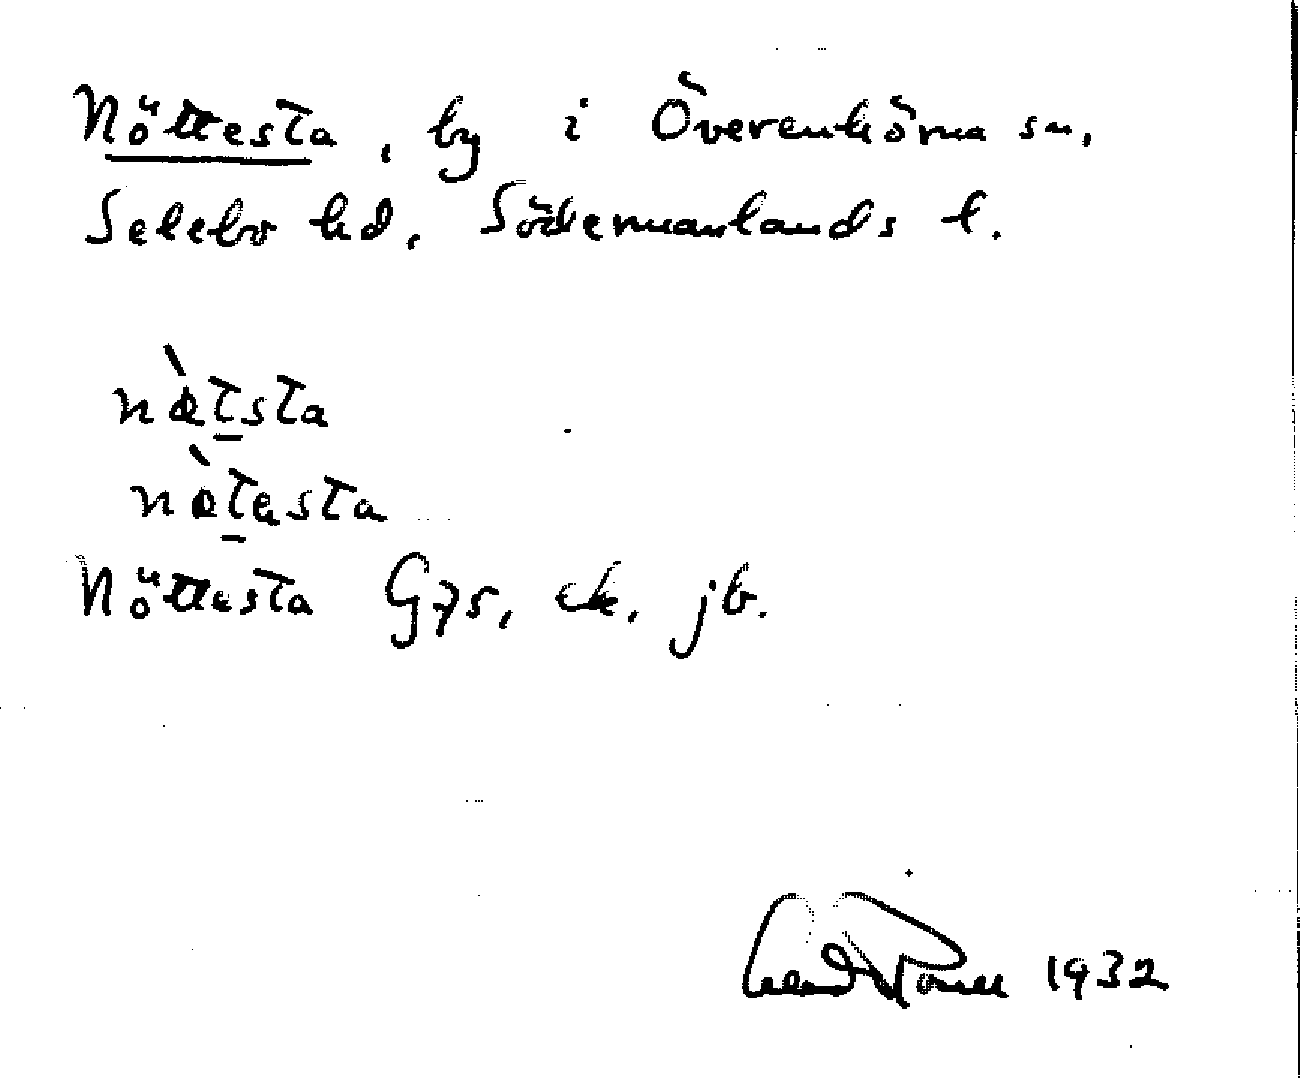 Nöttesta, by i Överenhörna sn,
Selebo hd, Södermanlands l.
nø̀tsta
nø̀testa
Nöttesta G75, ek. jb.
1932